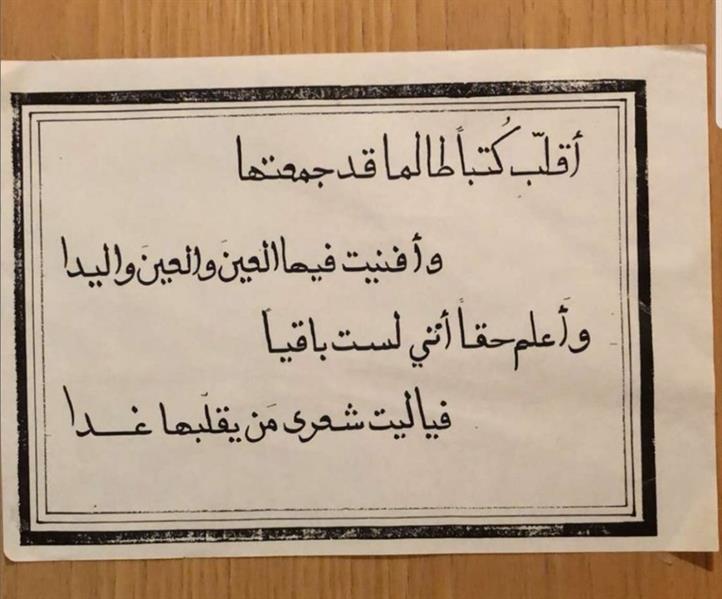 أقلّب كُتباً طالما قد جمعتها
وأفنيت فيها العينَ والعينَ واليدا
وَأعلم حقاً أنني لست باقياً
فياليت شعرى مَن يقلّبها غدا